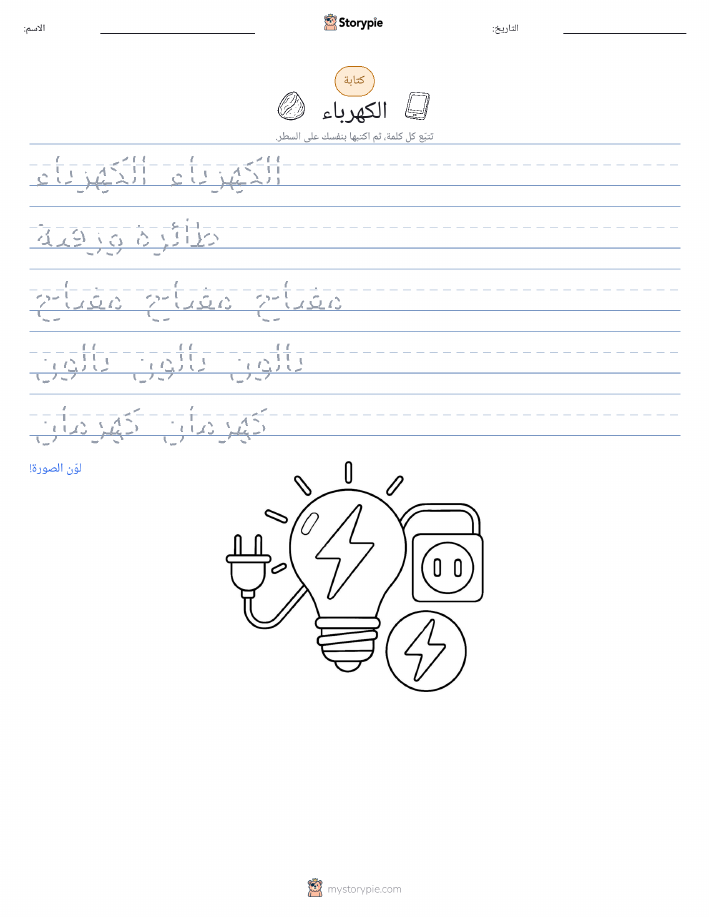 Storypie
الاسم:
التاريخ:
كتابة
الكهرباء
تتبّع كل كلمة، ثم اكتبها بنفسك على السطر.
الكهرباء الكهرباء
طائرة ورقية
مفتاح مفتاح مفتاح
بالون بالون بالون
كهرمان كهرمان
لوّن الصورة!
mystorypie.com